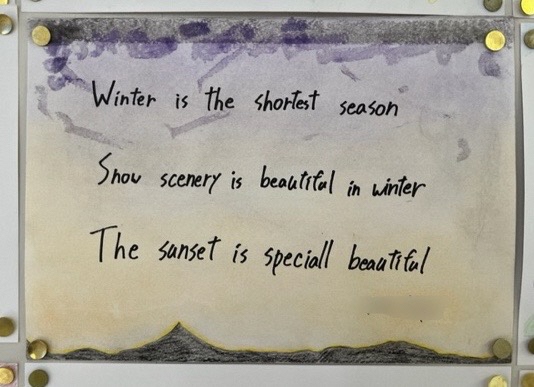 Winter is the shortest season
Snow scenery is beautiful in winter
The sunset is speciall beautiful